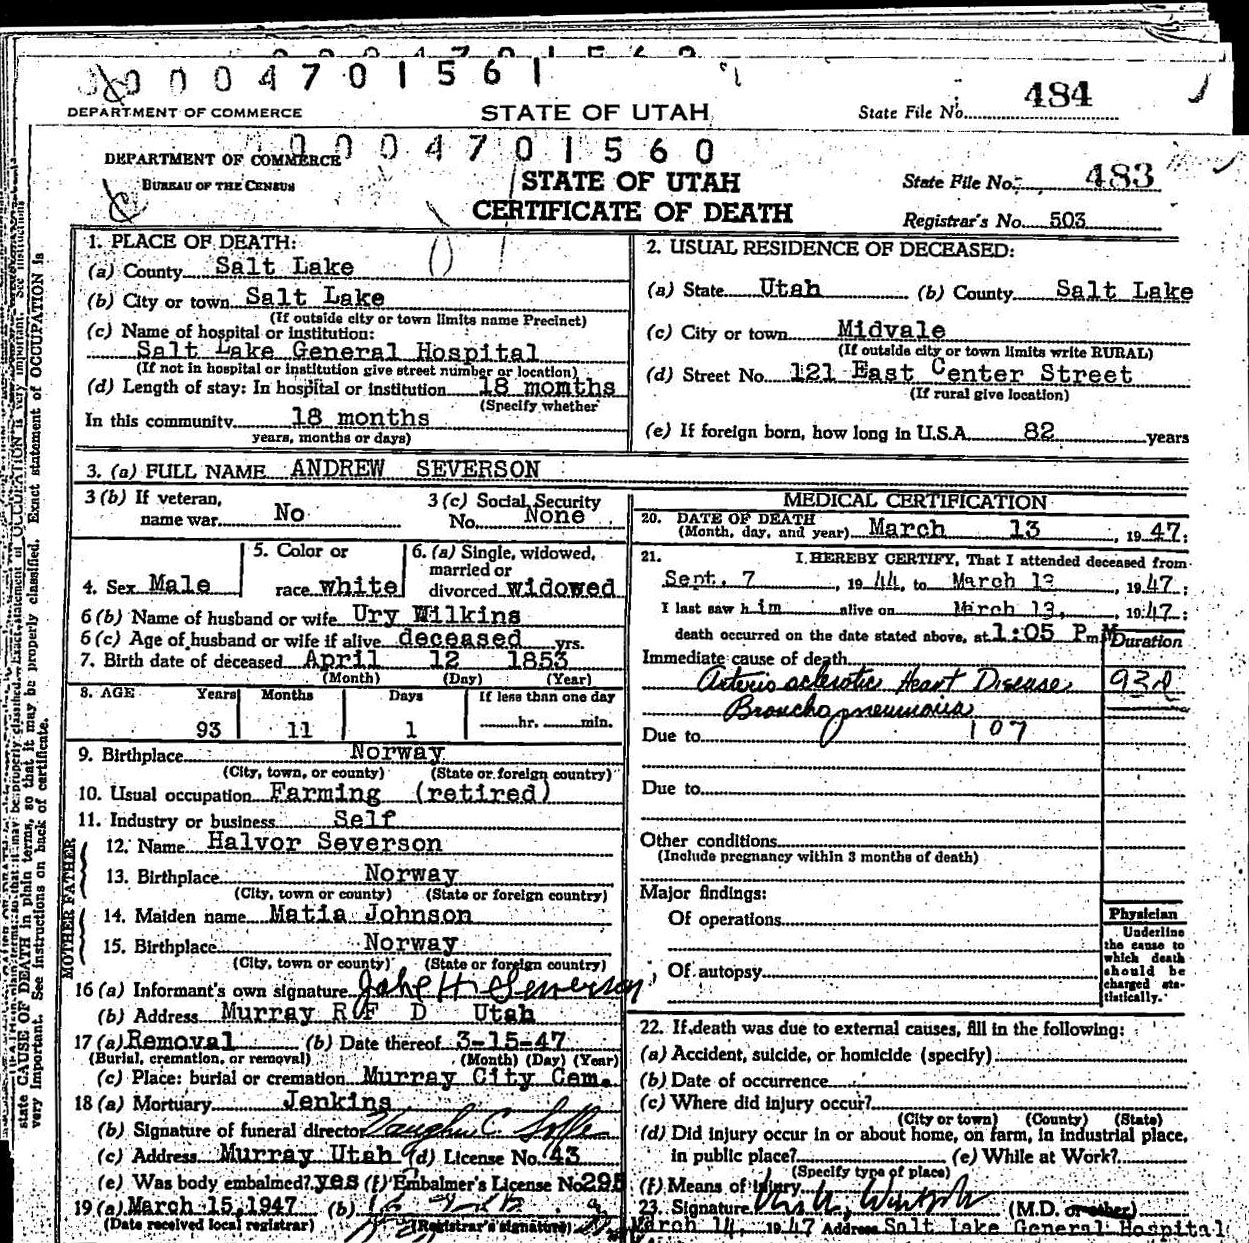 0 0 0 4 7 0 1 5 6 1
DEPARTMENT OF COMMERCE STATE OF UTAH State File No. 484
0 0 0 4 7 0 1 5 6 0
DEPARTMENT OF COMMERCE
BUREAU OF THE CENSUS
STATE OF UTAH
CERTIFICATE OF DEATH
State File No. 483
Registrar's No. 503
1. PLACE OF DEATH:
(a) County Salt Lake
(b) City or town Salt Lake
(If outside city or town limits name Precinct)
(c) Name of hospital or institution:
Salt Lake General Hospital
(If not in hospital or institution give street number or location)
(d) Length of stay: In hospital or institution 18 months
(Specify whether
In this community 18 months
years, months or days)
2. USUAL RESIDENCE OF DECEASED:
(a) State Utah (b) County Salt Lake
(c) City or town Midvale
(If outside city or town limits write RURAL)
(d) Street No. 121 East Center Street
(If rural give location)
(e) If foreign born, how long in U.S.A. 82 years
3. (a) FULL NAME ANDREW SEVERSON
3 (b) If veteran,
name war No
3 (c) Social Security
No. None
4. Sex Male
5. Color or
race white
6. (a) Single, widowed,
married or
divorced widowed
6 (b) Name of husband or wife Ury Wilkins
6 (c) Age of husband or wife if alive deceased yrs.
7. Birth date of deceased April 12 1853
(Month) (Day) (Year)
8. AGE Years Months Days If less than one day
93 11 1 hr. min.
9. Birthplace Norway
(City, town, or county) (State or foreign country)
10. Usual occupation Farming (retired)
11. Industry or business Self
FATHER
12. Name Halvor Severson
13. Birthplace Norway
(City, town or county) (State or foreign country)
MOTHER
14. Maiden name Matia Johnson
15. Birthplace Norway
(City, town or county) (State or foreign country)
16 (a) Informant's own signature Severson
(b) Address Murray R F D Utah
17 (a) Removal (b) Date thereof 3-15-47
(Burial, cremation, or removal) (Month) (Day) (Year)
(c) Place: burial or cremation Murray City Cem.
18 (a) Mortuary Jenkins
(b) Signature of funeral director Vaughn C.
(c) Address Murray Utah (d) License No. 43
(e) Was body embalmed? yes (f) Embalmer's License No 295
19 (a) March 15, 1947 (b)
(Date received local registrar) (Registrar's signature)
MEDICAL CERTIFICATION
20. DATE OF DEATH
(Month, day, and year) March 13, 1947:
21. I HEREBY CERTIFY, That I attended deceased from
Sept. 7, 1944, to March 13, 1947:
I last saw him alive on March 13, 1947:
death occurred on the date stated above, at 1:05 P m
Duration
Immediate cause of death
Arterio sclerotic Heart Disease 93d
Broncho pneumonia
Due to 107
Due to
Other conditions
(Include pregnancy within 3 months of death)
Major findings:
Of operations
Of autopsy
Physician
Underline
the cause to
which death
should be
charged sta-
tistically.
22. If death was due to external causes, fill in the following:
(a) Accident, suicide, or homicide (specify)
(b) Date of occurrence
(c) Where did injury occur?
(City or town) (County) (State)
(d) Did injury occur in or about home, on farm, in industrial place,
in public place? (e) While at Work?
(Specify type of place)
(f) Means of injury
23. Signature (M.D. or other)
March 14, 1947 Address Salt Lake General Hospital
state CAUSE OF DEATH in plain terms, so that it may be properly classified. Exact statement of OCCUPATION is
very important. See instructions on back of certificate.